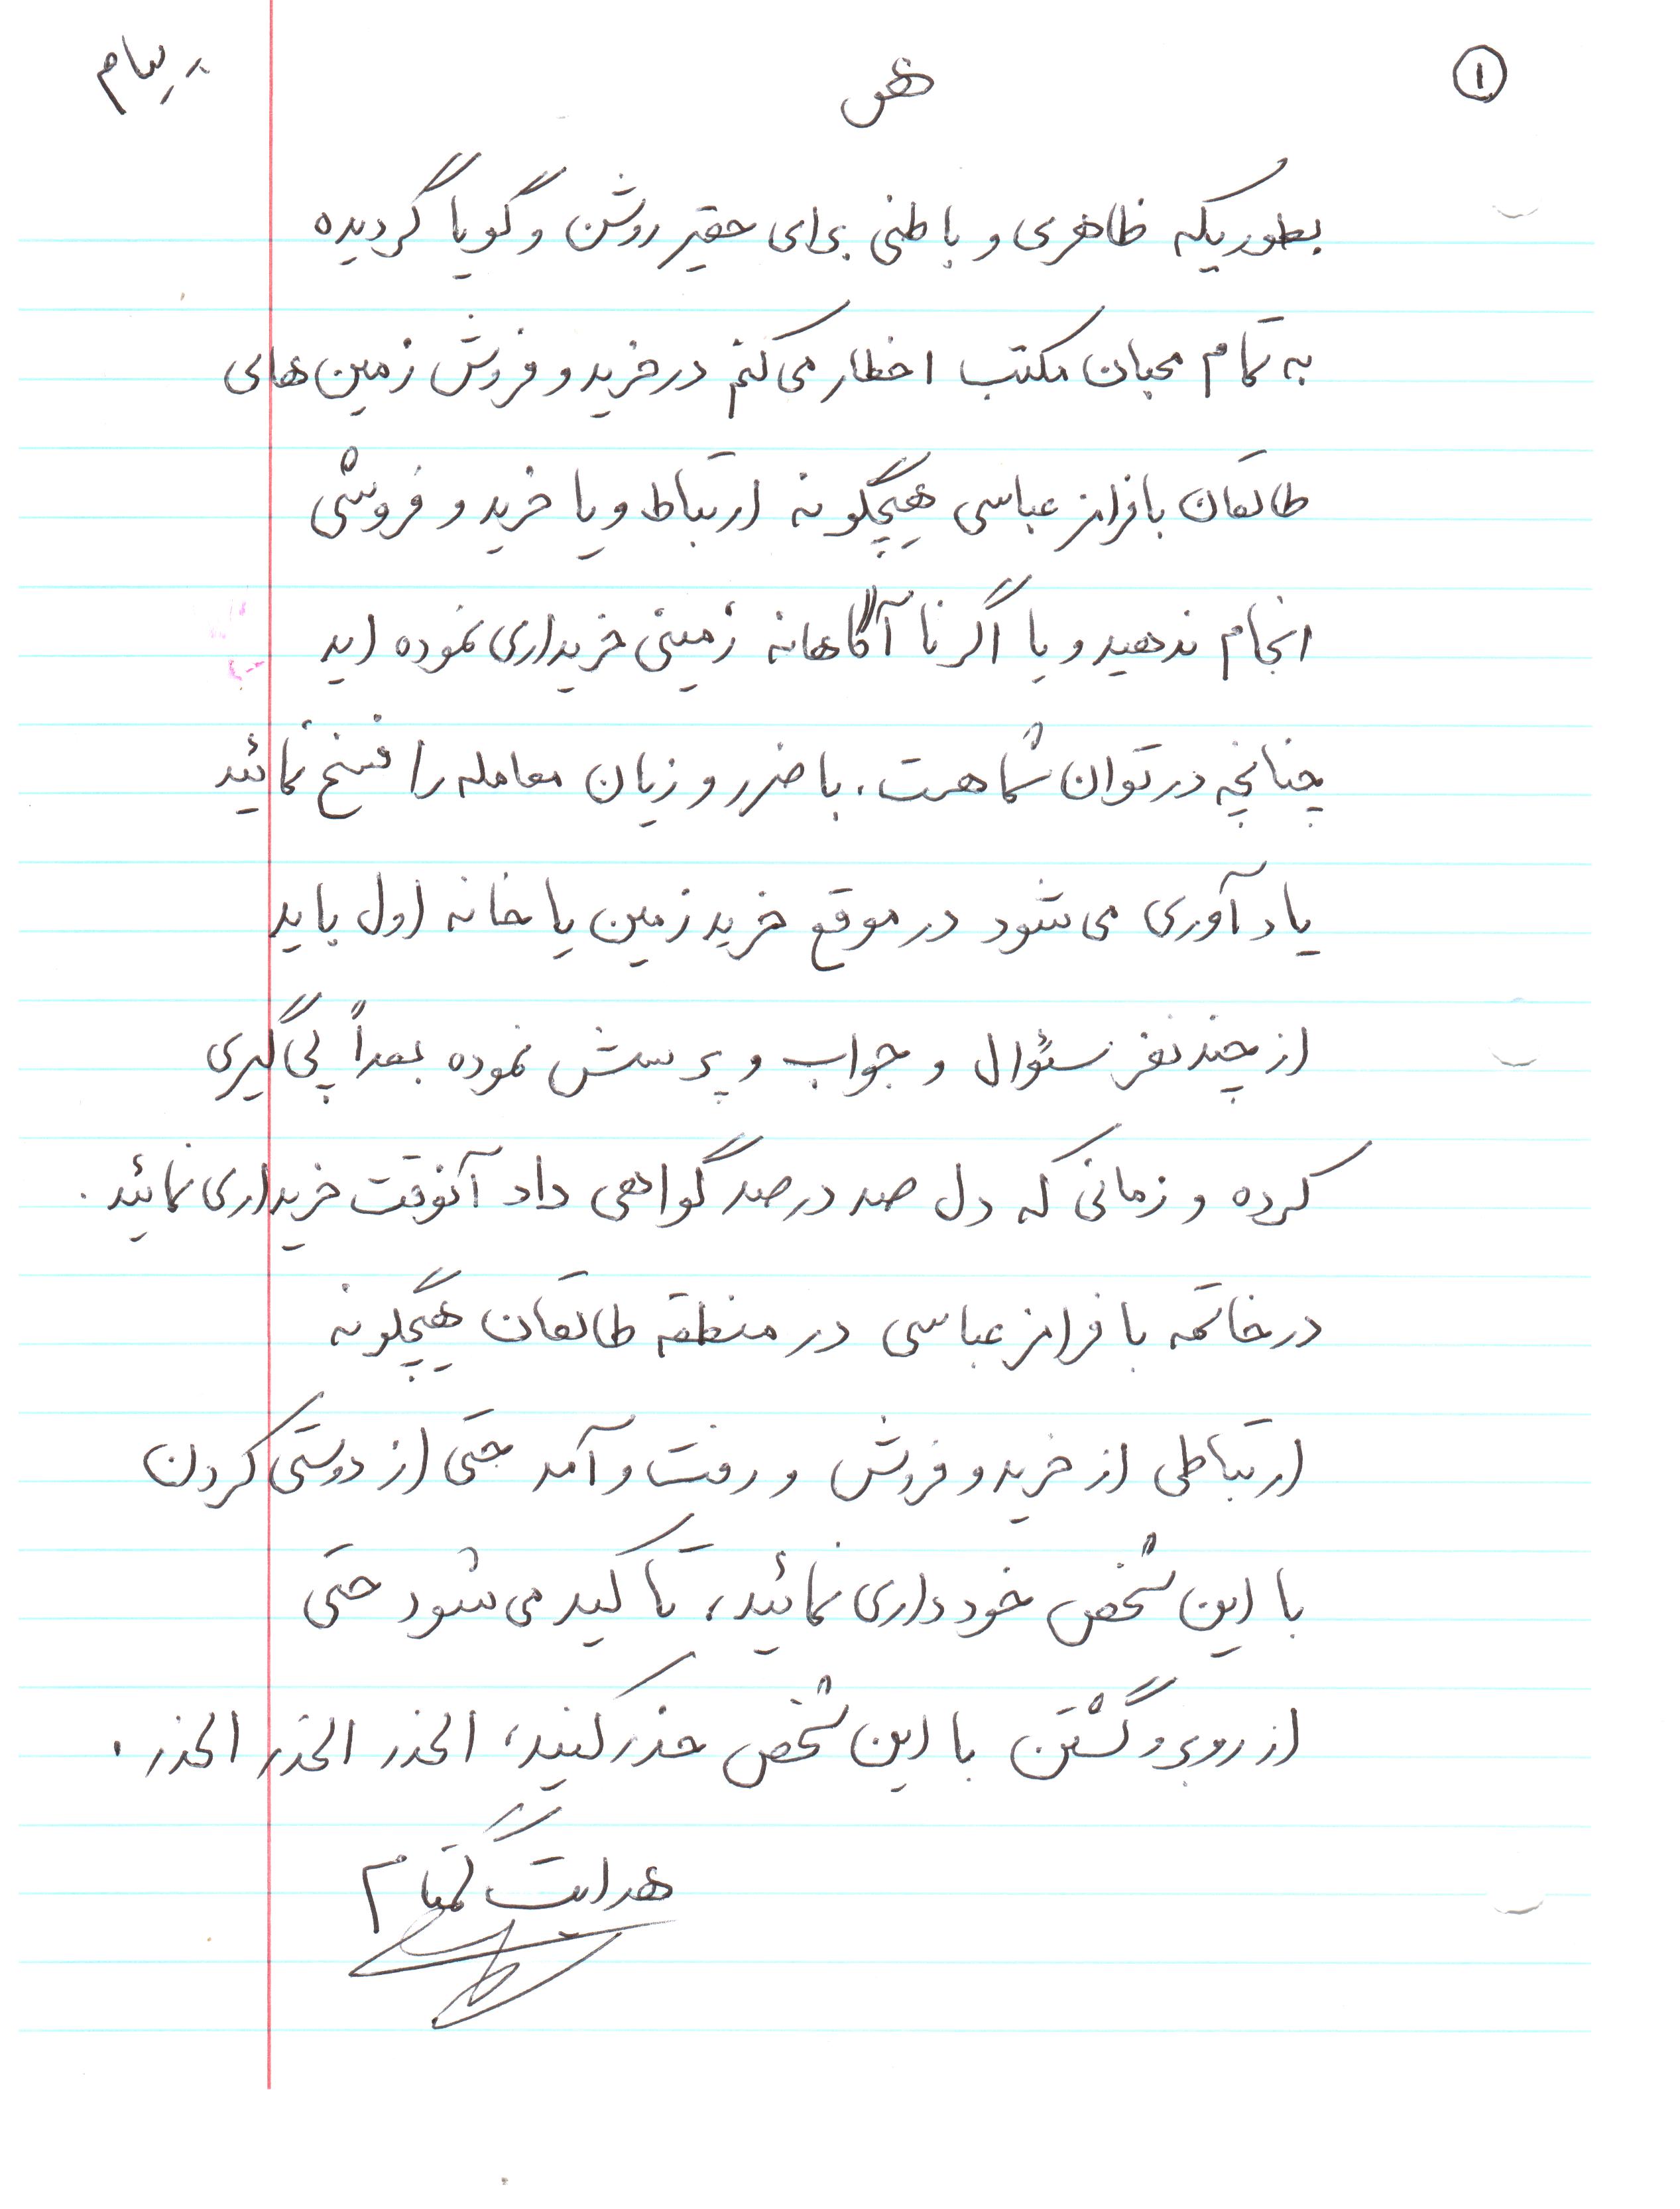 ①
هو
پیام
بطوریکه ظاهری و باطنی برای حقیر روشن و گویا گردیده
به تمام محبان مکتب اخطار می کنم در خرید و فروش زمین های
طالقان با فرامرز عباسی هیچگونه ارتباط و یا خرید و فروشی
انجام ندهید و یا اگر نا آگاهانه زمینی خریداری نموده اید
چنانچه در توان شما هست . با ضرر و زیان معامله را فسخ نمائید
یاد آوری می شود در موقع خرید زمین یا خانه اول باید
از چند نفر سئوال و جواب و پرسش نموده بعداً پی گیری
کرده و زمانی که دل صد در صد گواهی داد آنوقت خریداری نمائید .
در خاتمه با فرامرز عباسی در منطقه طالقان هیچگونه
ارتباطی از خرید و فروش و رفت و آمد حتی از دوستی کردن
با این شخص خود داری نمائید ، تا کید می شود حتی
از روبرو گشتن با این شخص حذر کنید ، الحذر الحذر الحذر .
هدایت گمنام